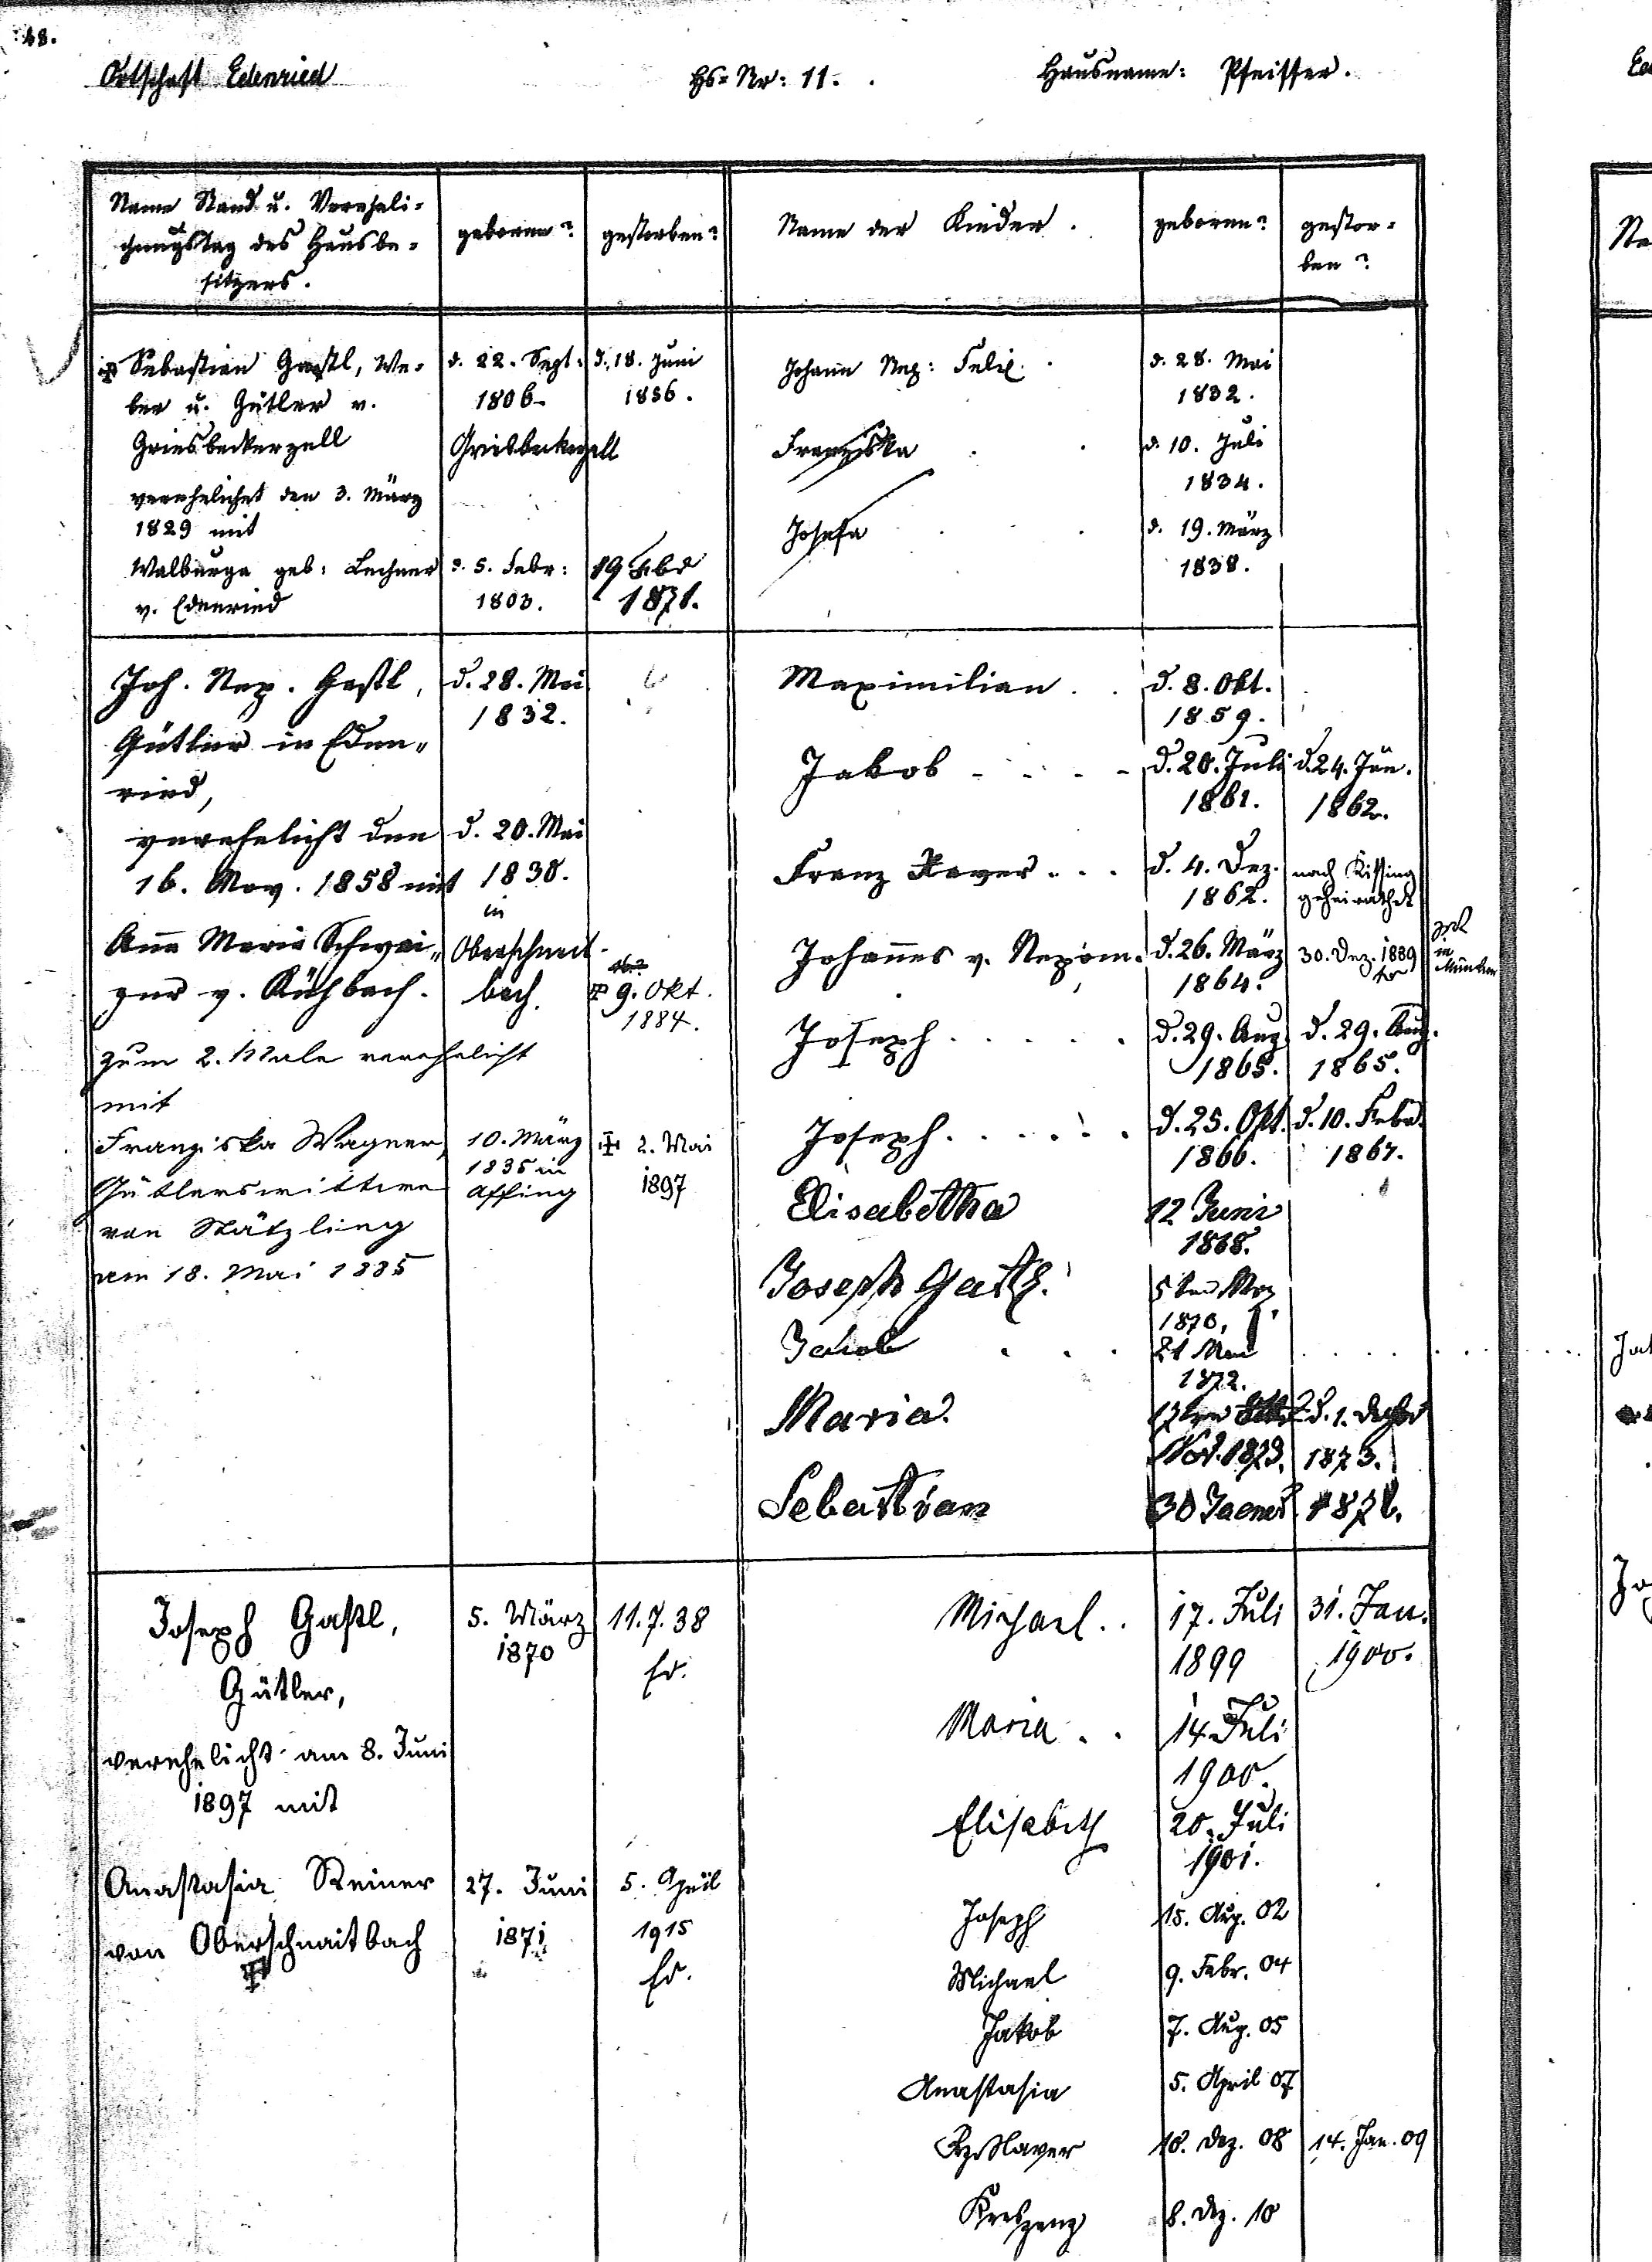 48.
Ortschaft Edenried
Hs=Nr: 11.
Hausname: Pfeiffer.
Name Stand u. Vereheli=
chungstag des Hausbe=
sitzers.
geboren?
gestorben?
Name der Kinder.
geboren?
gestor=
ben?
Sebastian Gastl, We=
ber u. Gütler v.
Griesbeckerzell
verehelichet den 3. März
1829 mit
Walburga geb: Lechner
v. Edenried
d. 22. Sept:
1806
Griesbeckerzell
d. 5. Febr:
1803.
d. 18. Juni
1856.
19 Febr
1871.
Johann Nep: Felix.
d. 28. Mai
1832.
Franziska
d. 10. Juli
1834.
Josefa
d. 19. März
1838.
Joh. Nep. Gastl,
Gütler in Eden„
ried,
verehelicht den
16. Nov. 1858 mit
Anna Maria Schwai„
ger v. Kühbach.
zum 2. Male verehelicht
mit
Franziska Wagner,
Gütlerswittwe
von Stätzling
am 18. Mai 1885
d. 28. Mai
1832.
d. 20. Mai
1838.
in
Oberschneit-
bach.
10. März
1835 in
Affing
9. Okt.
1884.
2. Mai
1897
Maximilian . .
d. 8. Okt.
1859.
Jakob - - - -
d. 20. Juli
1861.
d. 24. Jän.
1862.
Franz Xaver . . .
d. 4. Dez.
1862.
nach Kissing
geheirathet
Johannes v. Nepom.
d. 26. März
1864.
30. Dez. 1889
in
München
Joseph . . . . .
d. 29. Aug.
1865.
d. 29. Aug.
1865.
Joseph . . . . . .
d. 25. Okt.
1866.
d. 10. Febr.
1867.
Elisabetha
12 Juni
1868.
Joseph Gastl.
5ten Mrz
1870,
Jakob . . .
21 Mai
1872.
Maria.
Nov. 1873.
d. 1. Dezbr
1873.
Sebastian
30 Jaener 1876.
Joseph Gastl,
Gütler,
verehelicht am 8. Juni
1897 mit
Anastasia Steiner
von Oberschnaitbach
5. März
1870
27. Juni
1871
11.7.38
Er.
5. April
1915
Er.
Michael . .
17. Juli
1899
31. Jan.
1900.
Maria . .
14. Juli
1900.
Elisabeth
20. Juli
1901.
Joseph
15. Aug. 02
Michael
9. Febr. 04
Jakob
7. Aug. 05
Anastasia
5. April 07
Fz. Xaver
18. Dez. 08
14. Jan. 09
Kreszenz
8. Dez. 10